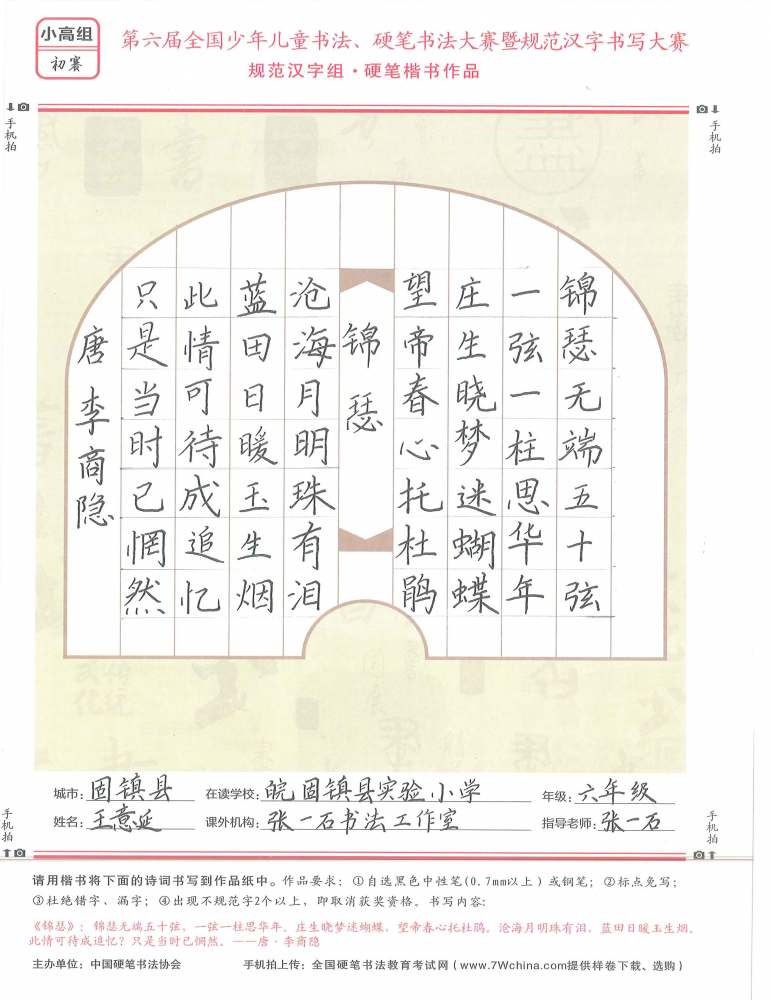 小高组
初赛
第六届全国少年儿童书法、硬笔书法大赛暨规范汉字书写大赛
规范汉字组·硬笔楷书作品
手机拍
手机拍
锦瑟无端五十弦
一弦一柱思华年
庄生晓梦迷蝴蝶
望帝春心托杜鹃
锦瑟
沧海月明珠有泪
蓝田日暖玉生烟
此情可待成追忆
只是当时已惘然
唐李商隐
城市：固镇县 在读学校：皖固镇县实验小学 年级：六年级
姓名：王意延 课外机构：张一石书法工作室 指导老师：张一石
手机拍
手机拍
请用楷书将下面的诗词书写到作品纸中。作品要求：①自选黑色中性笔(0.7mm以上)或钢笔；②标点免写；
③杜绝错字、漏字；④出现不规范字2个以上，即取消获奖资格。书写内容：
《锦瑟》：锦瑟无端五十弦，一弦一柱思华年。庄生晓梦迷蝴蝶，望帝春心托杜鹃。沧海月明珠有泪，蓝田日暖玉生烟。
此情可待成追忆？只是当时已惘然。——唐·李商隐
主办单位：中国硬笔书法协会 手机拍上传：全国硬笔书法教育考试网(www.7Wchina.com提供样卷下载、选购)